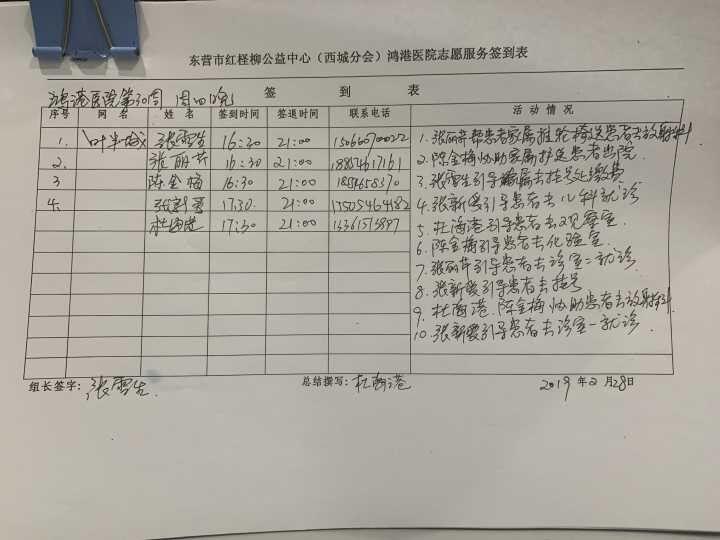 东营市红柽柳公益中心（西城分会）鸿港医院志愿服务签到表
鸿港医院第30周 周四晚
签 到 表
序号 网 名 姓 名 签到时间 签退时间 联系电话 活 动 情 况
1. 张雪生 16:30 21:00
2. 张丽芹 16:30 21:00
3 陈金梅 16:30 21:00
4. 张新爱 17:30 21:00
杜海港 17:30 21:00
1.张丽芹帮患者家属推轮椅送患者去放射科
2.陈金梅协助家属护送患者出院
3.张雪生引导 家属去挂号处缴费
4.张新爱引导患者去儿科就诊
5.杜海港引导患者去观察室
6.陈金梅引导患者去化验室
7.张丽芹引导患者去诊室二就诊
8.张新爱引导患者去挂号
9.杜海港.陈金梅协助患者去放射科
10.张新爱引导患者去诊室一就诊
组长签字：张雪生 总结撰写：杜海港 2019年2月28日